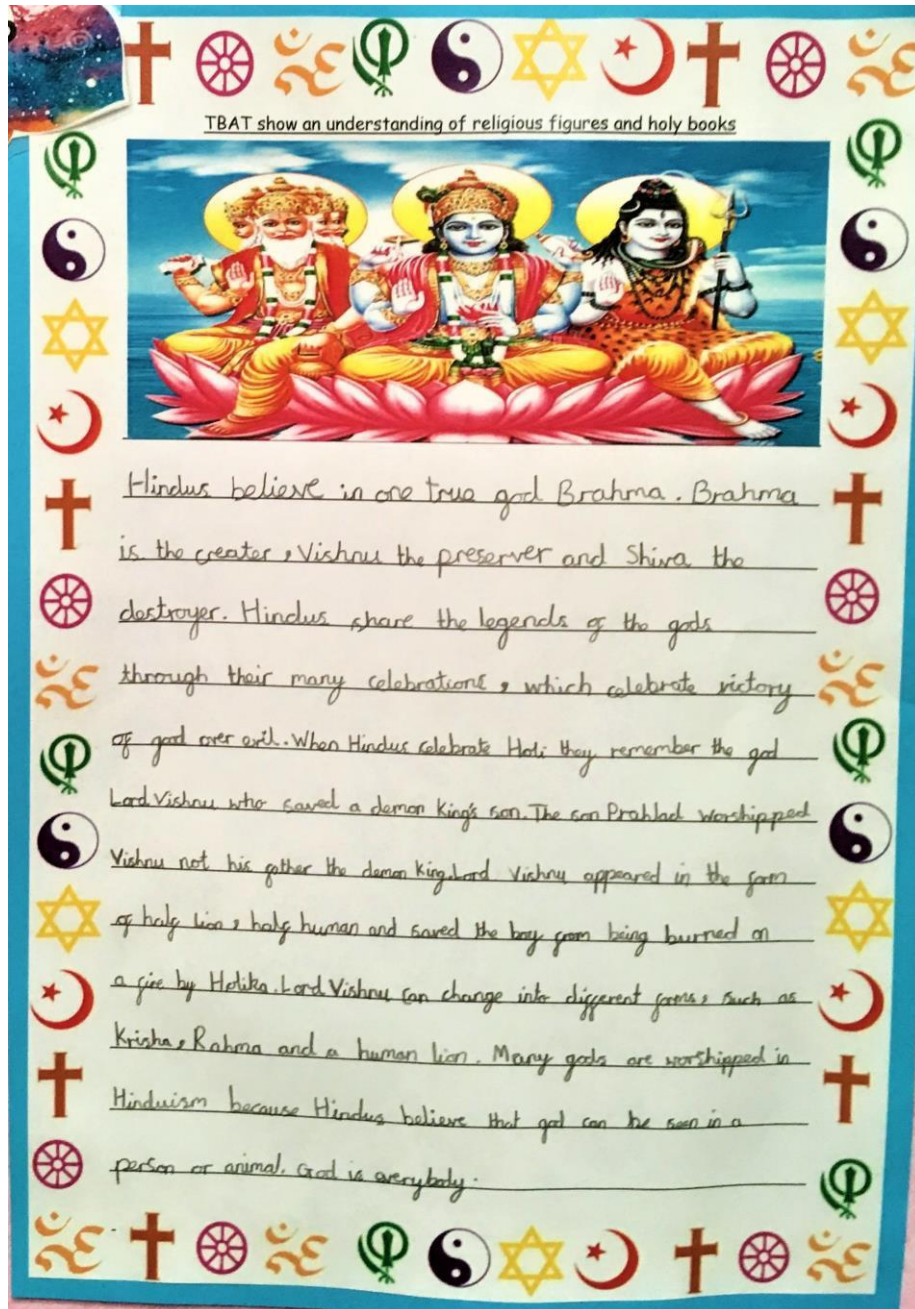 TBAT show an understanding of religious figures and holy books
Hindus believe in one true god Brahma. Brahma
is the creater, Vishnu the preserver and Shiva the
destroyer. Hindus share the legends of the gods
through their many celebrations, which celebrate victory
of good over evil. When Hindus celebrate Holi they remember the god
Lord Vishnu who saved a demon King's son. The son Prahlad worshipped
Vishnu not his father the demon King. Lord Vishnu appeared in the form
of half lion, half human and saved the boy from being burned on
a fire by Holika. Lord Vishnu can change into different forms, such as
Krisha, Rahma and a human lion. Many gods are worshipped in
Hinduism because Hindus believe that god can be seen in a
person or animal. God is everybody.